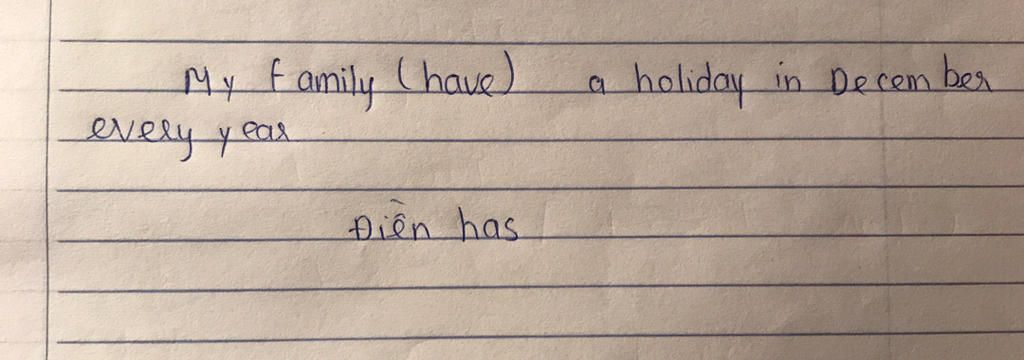 My family (have) a holiday in December
every year
Điền has